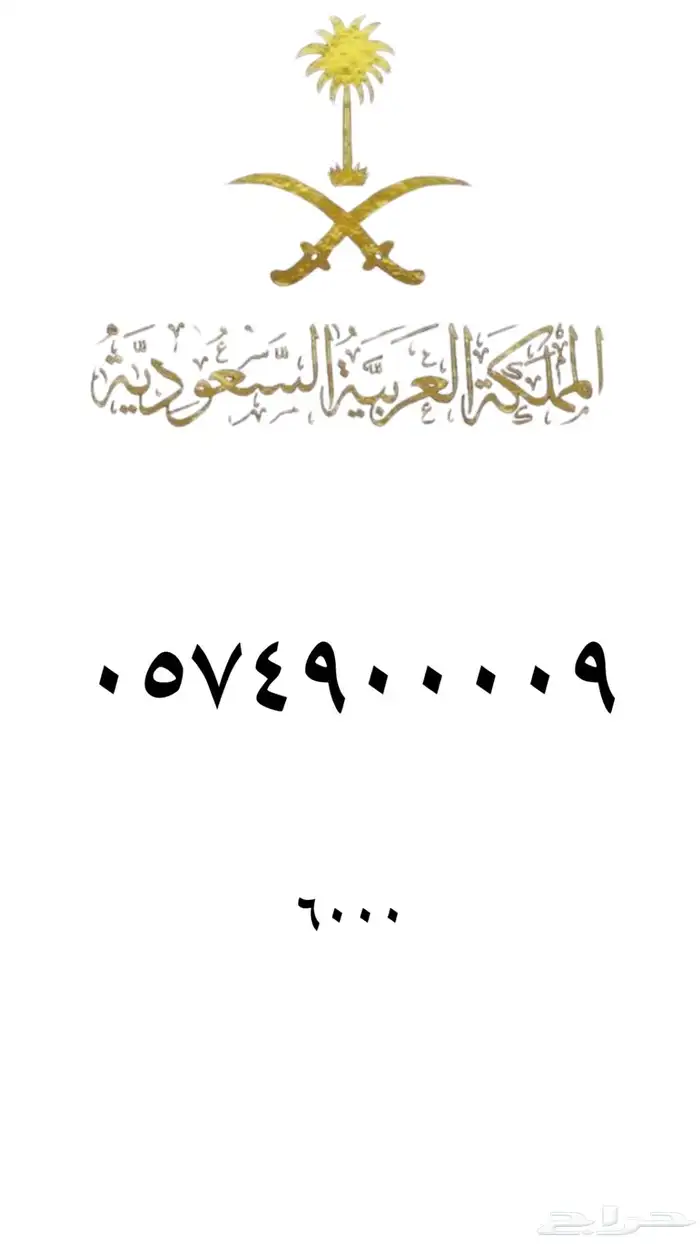 المملكة العربية السعودية
٠٥٧٤٩٠٠٠٠٩
٦٠٠٠
حراج